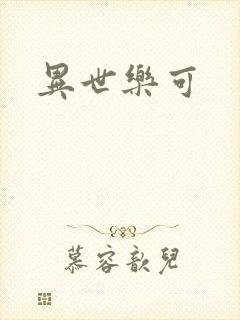 異世樂可
慕容歆兒